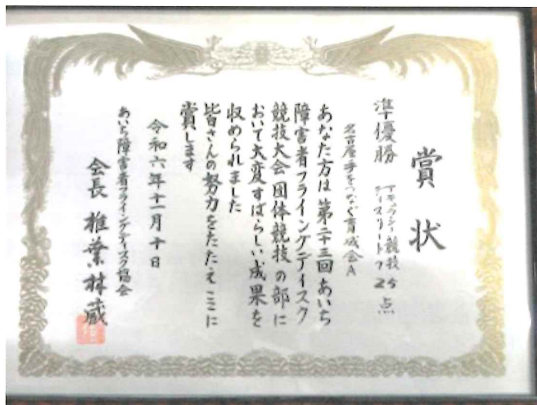 賞状
準優勝
アキュラシー競技
点
名古屋手をつなぐ育成会A
あなた方は第二十三回あいち
障害者フライングディスク
競技大会団体競技の部に
おいて大変すばらしい成果を
収められました
皆さんの努力をたたえここに
賞します
令和六年十一月十日
あいち障害者フライングディスク協会
会長 椎葉林蔵